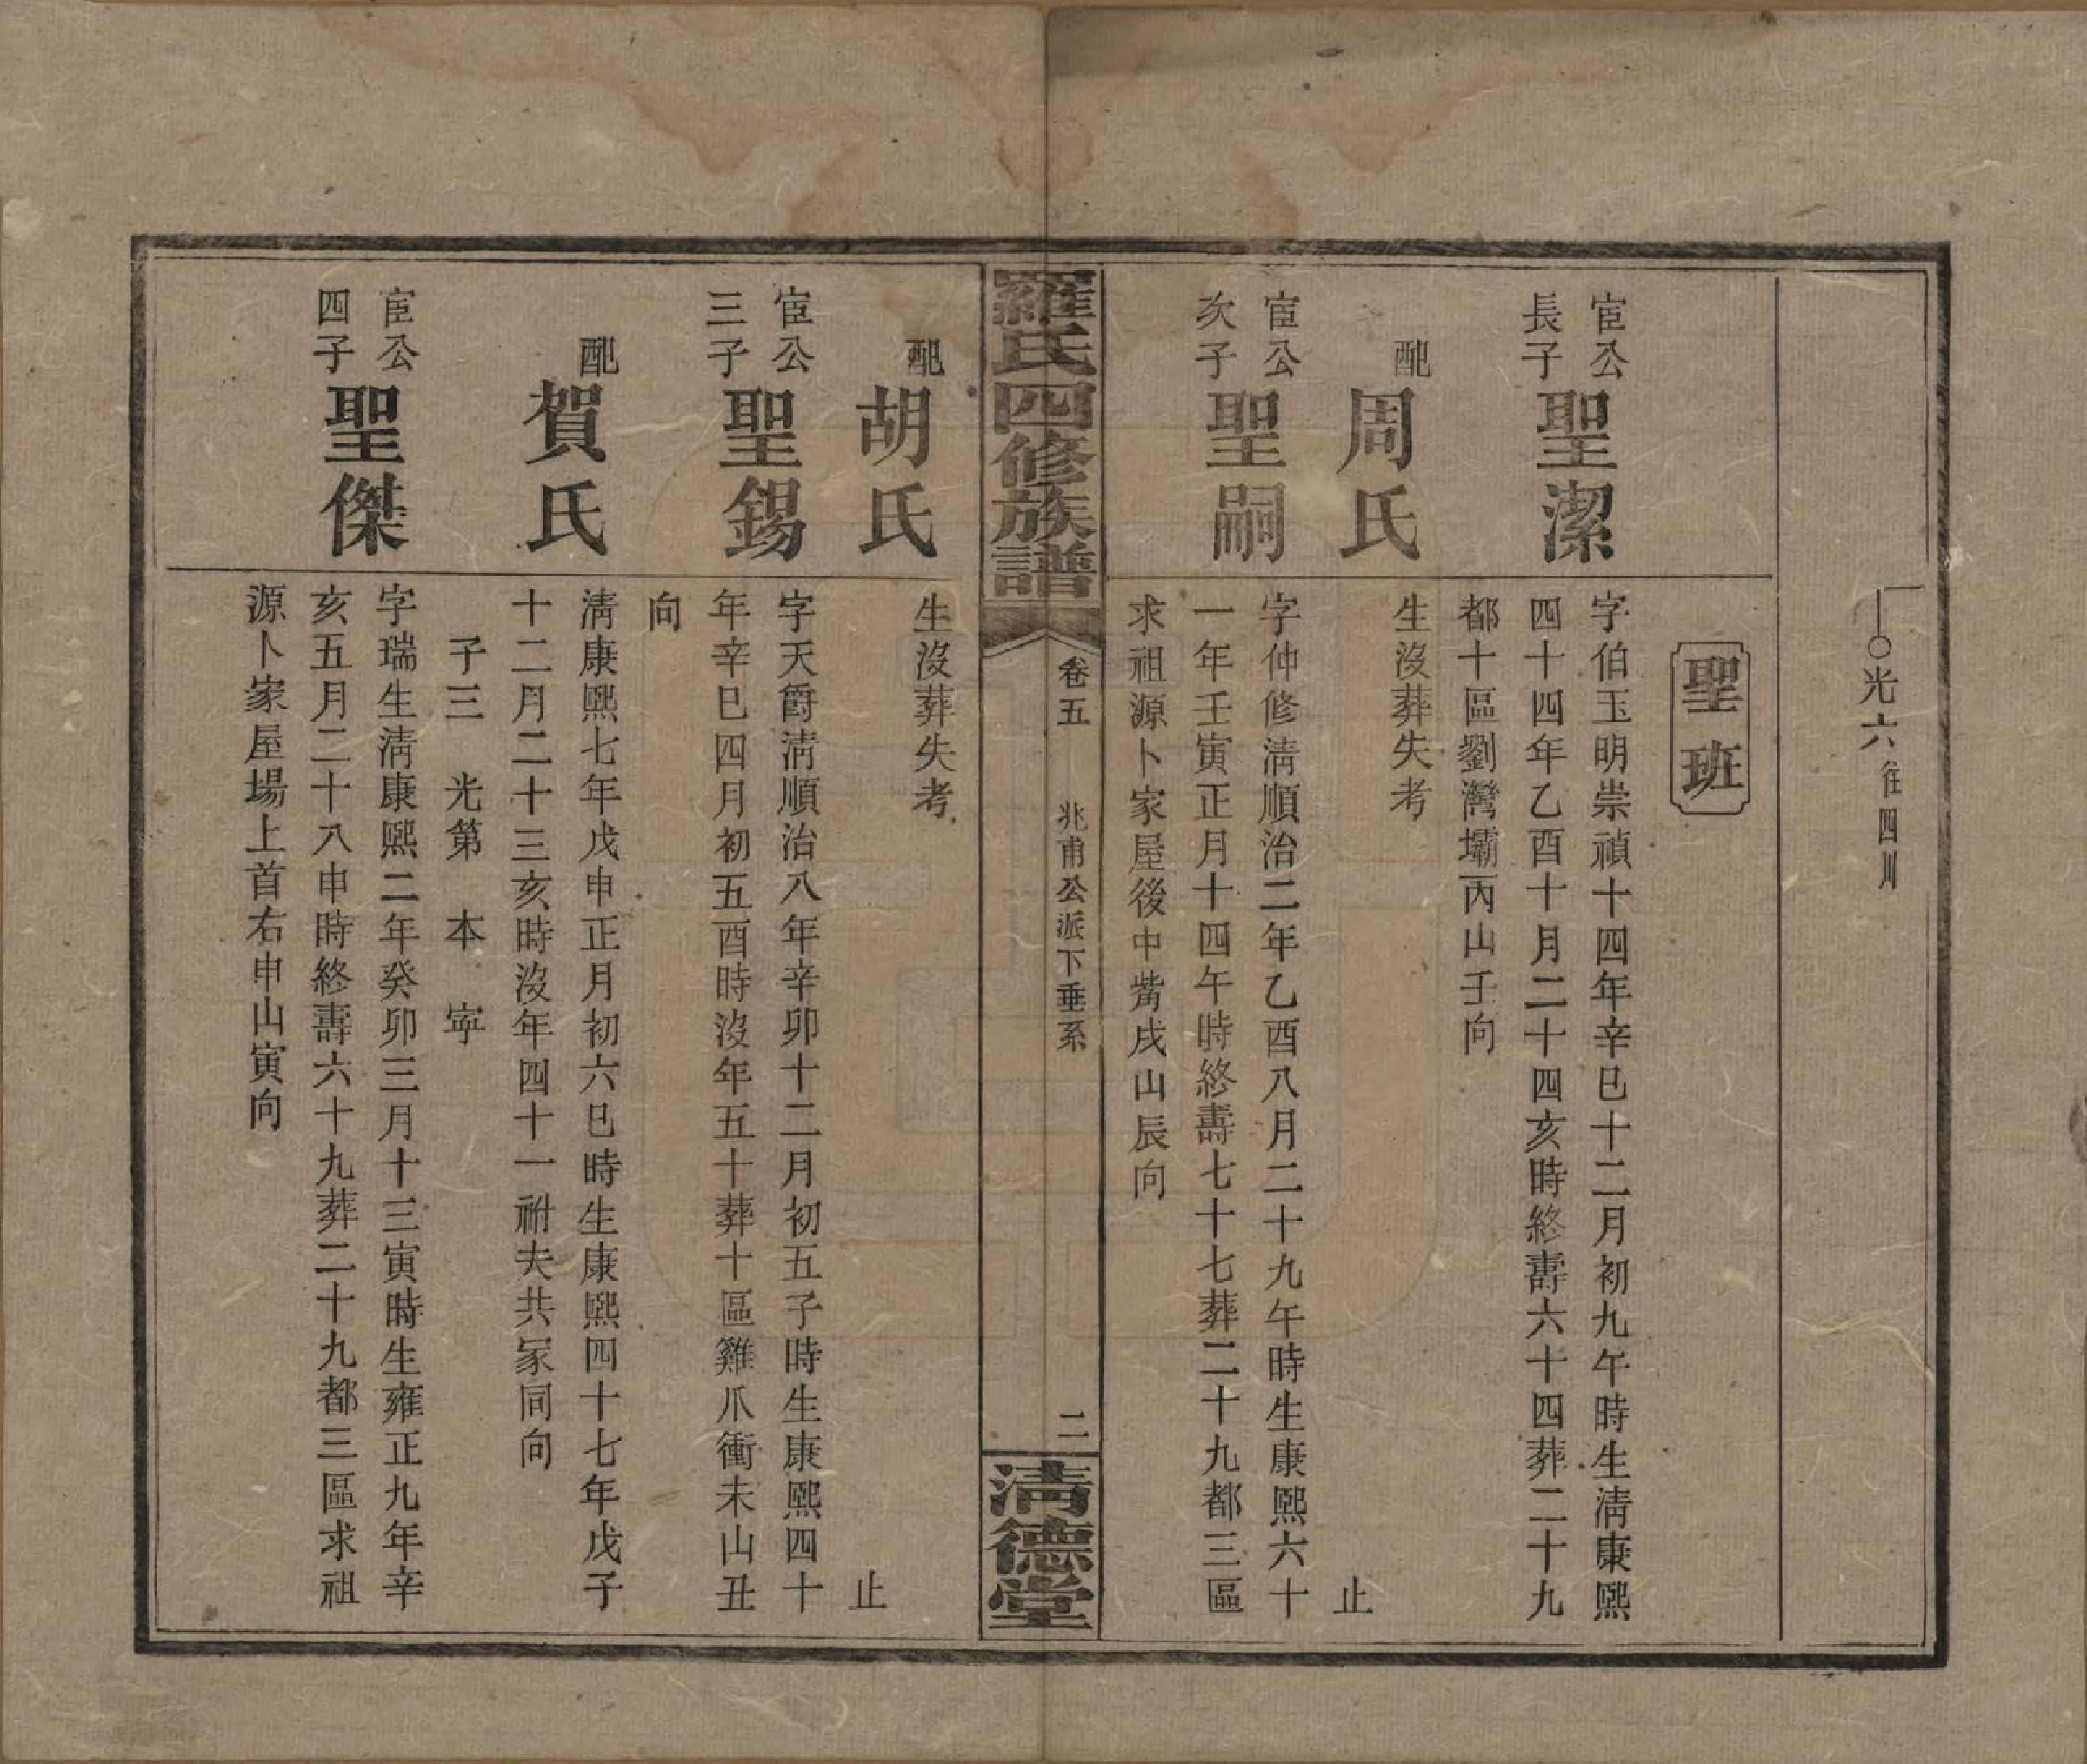 光六往四川
聖班
宦公長子聖潔
字伯玉明崇禎十四年辛巳十二月初九午時生清康熙
四十四年乙酉十月二十四亥時終壽六十四葬二十九
都十區劉灣壩丙山壬向
配周氏
生沒葬失考
止
宦公次子聖嗣
字仲修清順治二年乙酉八月二十九午時生康熙六十
一年壬寅正月十四午時終壽七十七葬二十九都三區
求祖源卜家屋後中嘴戌山辰向
羅氏四修族譜
卷五
兆甫公派下垂系
二
清德堂
配胡氏
生沒葬失考
止
宦公三子聖錫
字天爵清順治八年辛卯十二月初五子時生康熙四十
年辛巳四月初五酉時沒年五十葬十區雞爪衝未山丑
向
配賀氏
清康熙七年戊申正月初六巳時生康熙四十七年戊子
十二月二十三亥時沒年四十一祔夫共冢同向
子三 光第 本 寧
宦公四子聖傑
字瑞生清康熙二年癸卯三月十三寅時生雍正九年辛
亥五月二十八申時終壽六十九葬二十九都三區求祖
源卜家屋場上首右申山寅向